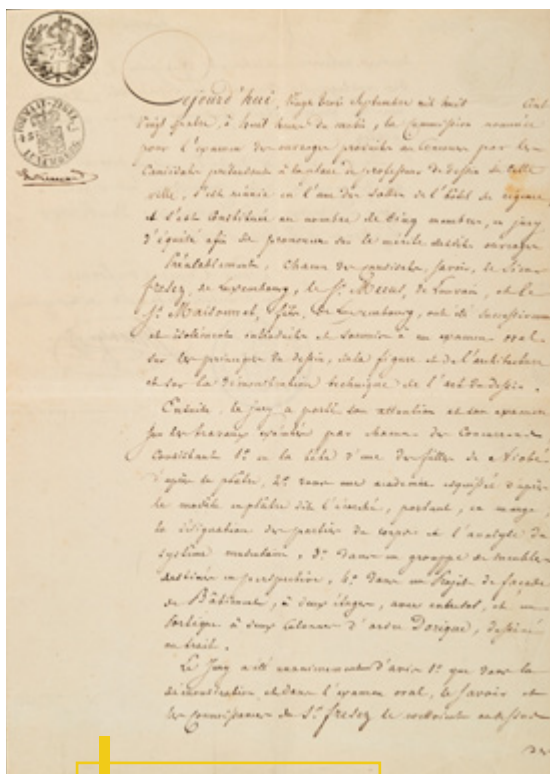 Cejourd'hui, Vingt trois Septembre mil huit Cent
Vingt quatre, à huit heures du matin, la Commission nommée
pour l'examen des ouvrages produits au Concours par les
Candidats prétendant à la place de professeur de dessin de cette
ville, s'est réunie en l'une des salles de l'hôtel de régence
et s'est Constituée au nombre de Cinq membres, en jury
d'équité afin de prononcer sur le mérite desdits ouvrages
Préalablement, Chacun des candidats, Savoir, le Sieur
fresez, de Luxembourg, le Sr. de Louvain, et le
Sr. Maisonnet, fils, de Luxembourg, ont été successivement
et isolément et soumis à un examen oral
sur les principes du dessin, de la figure et de l'architecture
et sur la démonstration technique de l'art du dessin.
Ensuite, le jury a porté son attention et son examen
sur les travaux exécutés par chacun des Concurrents
Consistant 1º en la tête d'une des filles de Niobé
d'après le plâtre, 2º dans une académie esquissée d'après
le modèle en plâtre dit l'écorché, portant, en marge,
la désignation des parties du corps et l'analyse du
système musculaire, 3º dans un grouppe de meubles
dessinés en perspective, 4º dans un Projet de façade
de Bâtiment, à deux étages, avec et un
Portique à deux Colonnes d'ordre Dorique, dessiné
au trait.
Le Jury a été unanimement d'avis 1º que dans la
démonstration et dans l'examen oral, le savoir et
les connaissances du Sr. fresez le